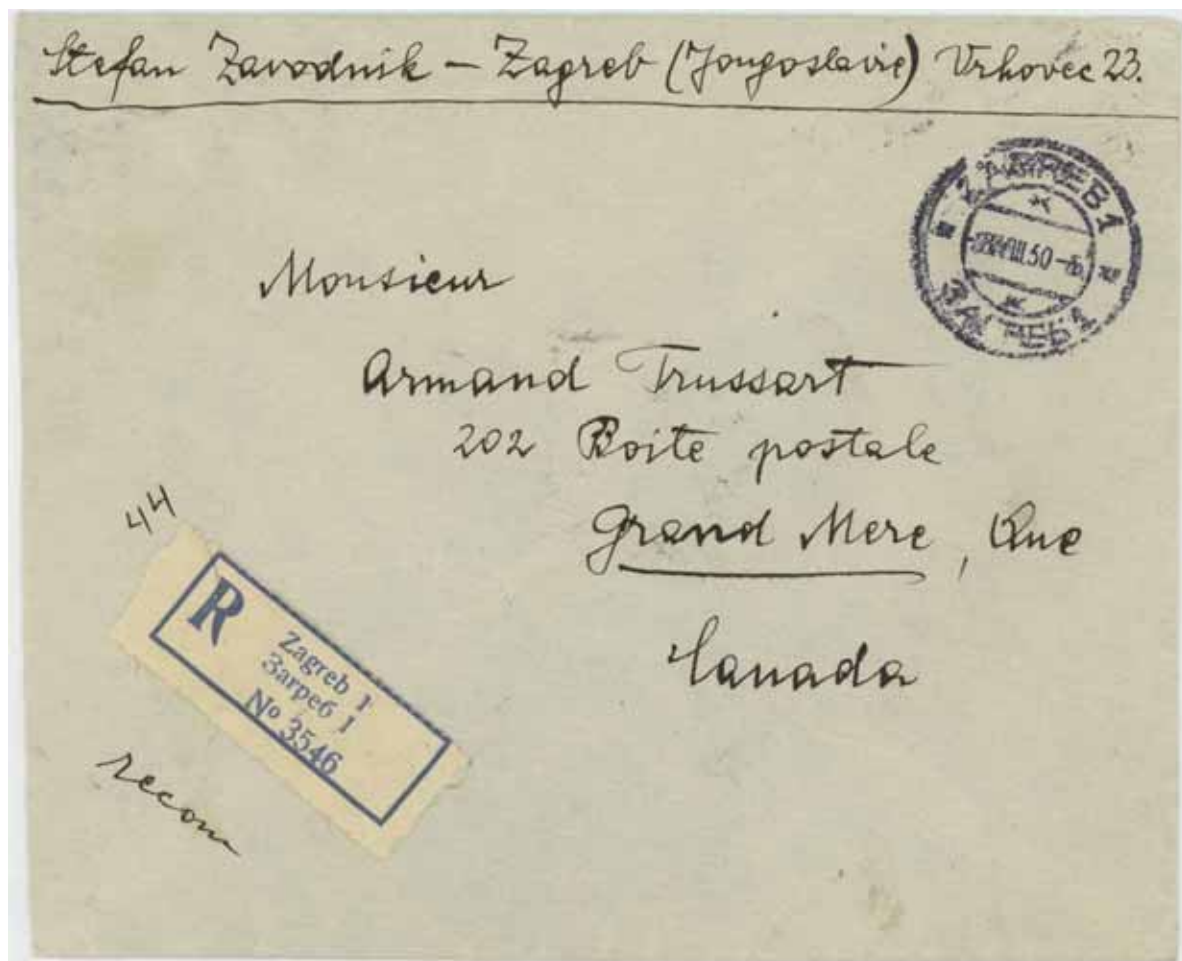 Stefan Zavodnik – Zagreb (Jougoslavie) Vrhovec 23.
ZAGREB 1
VIII.50
ЗАГРЕБ 1
Monsieur
Armand Trussart
202 Boite postale
Grand Mere, Que
Canada
44
R
Zagreb 1
Загреб 1
No 3546
recom